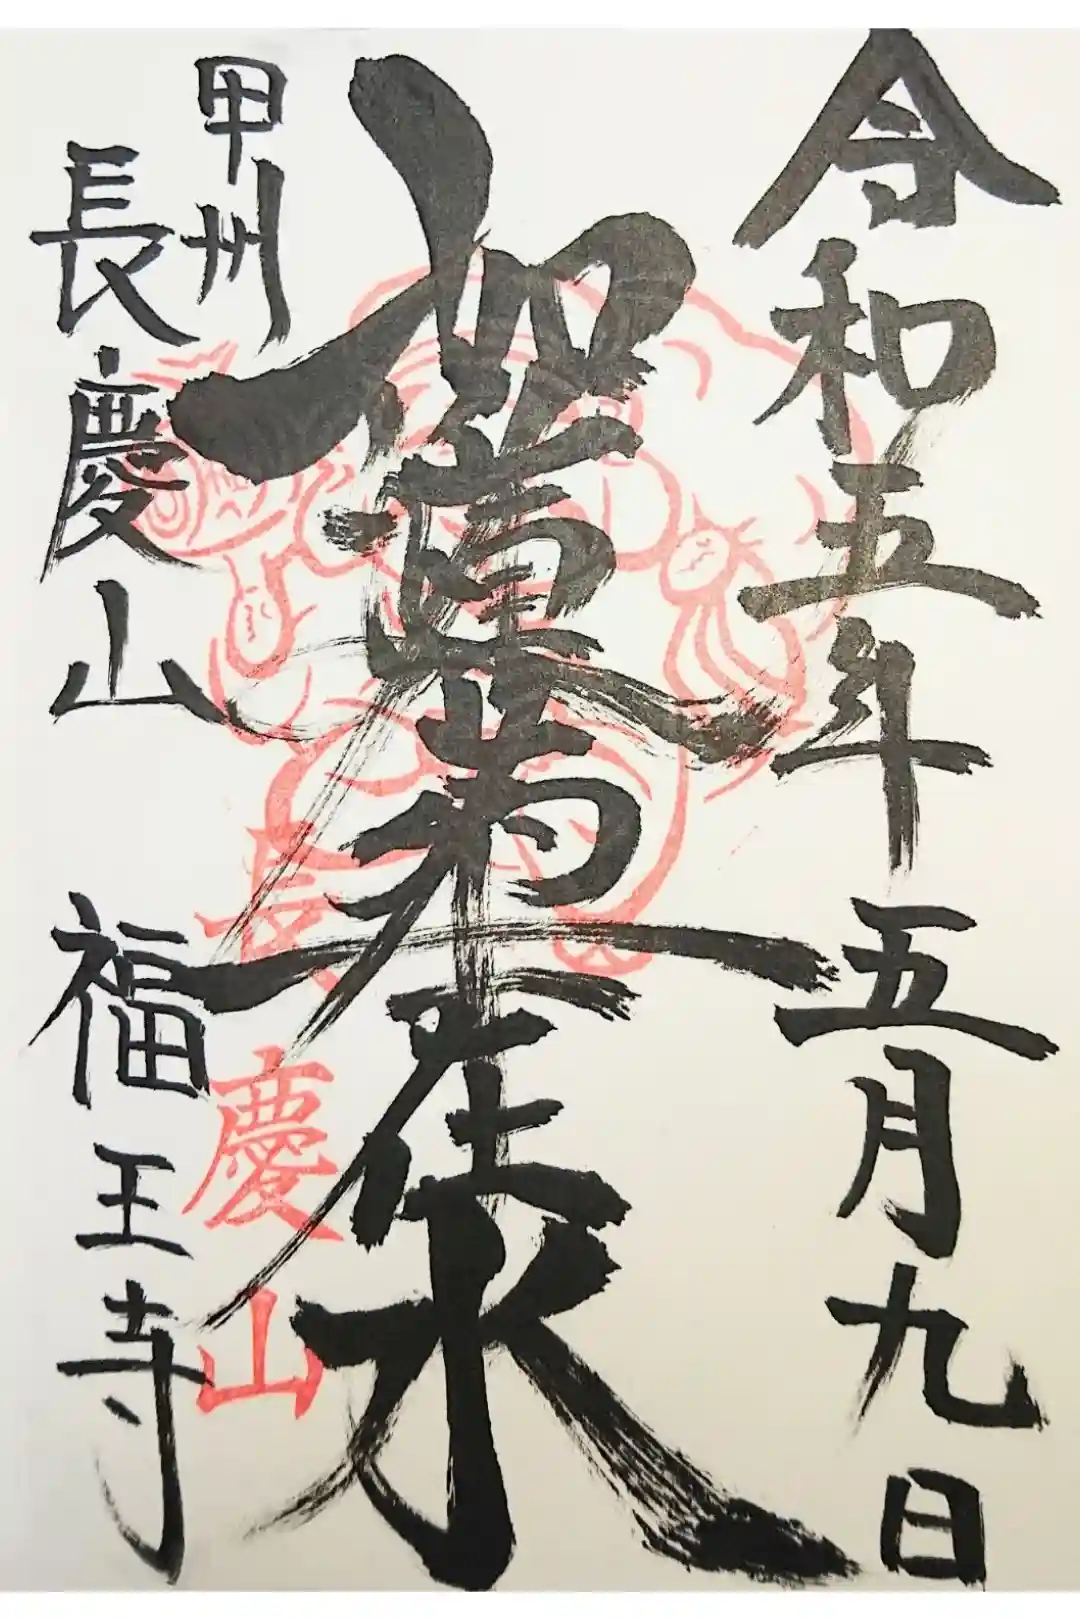 令和五年五月九日
如蓮華在水
甲州
長慶山 福王寺
長慶山